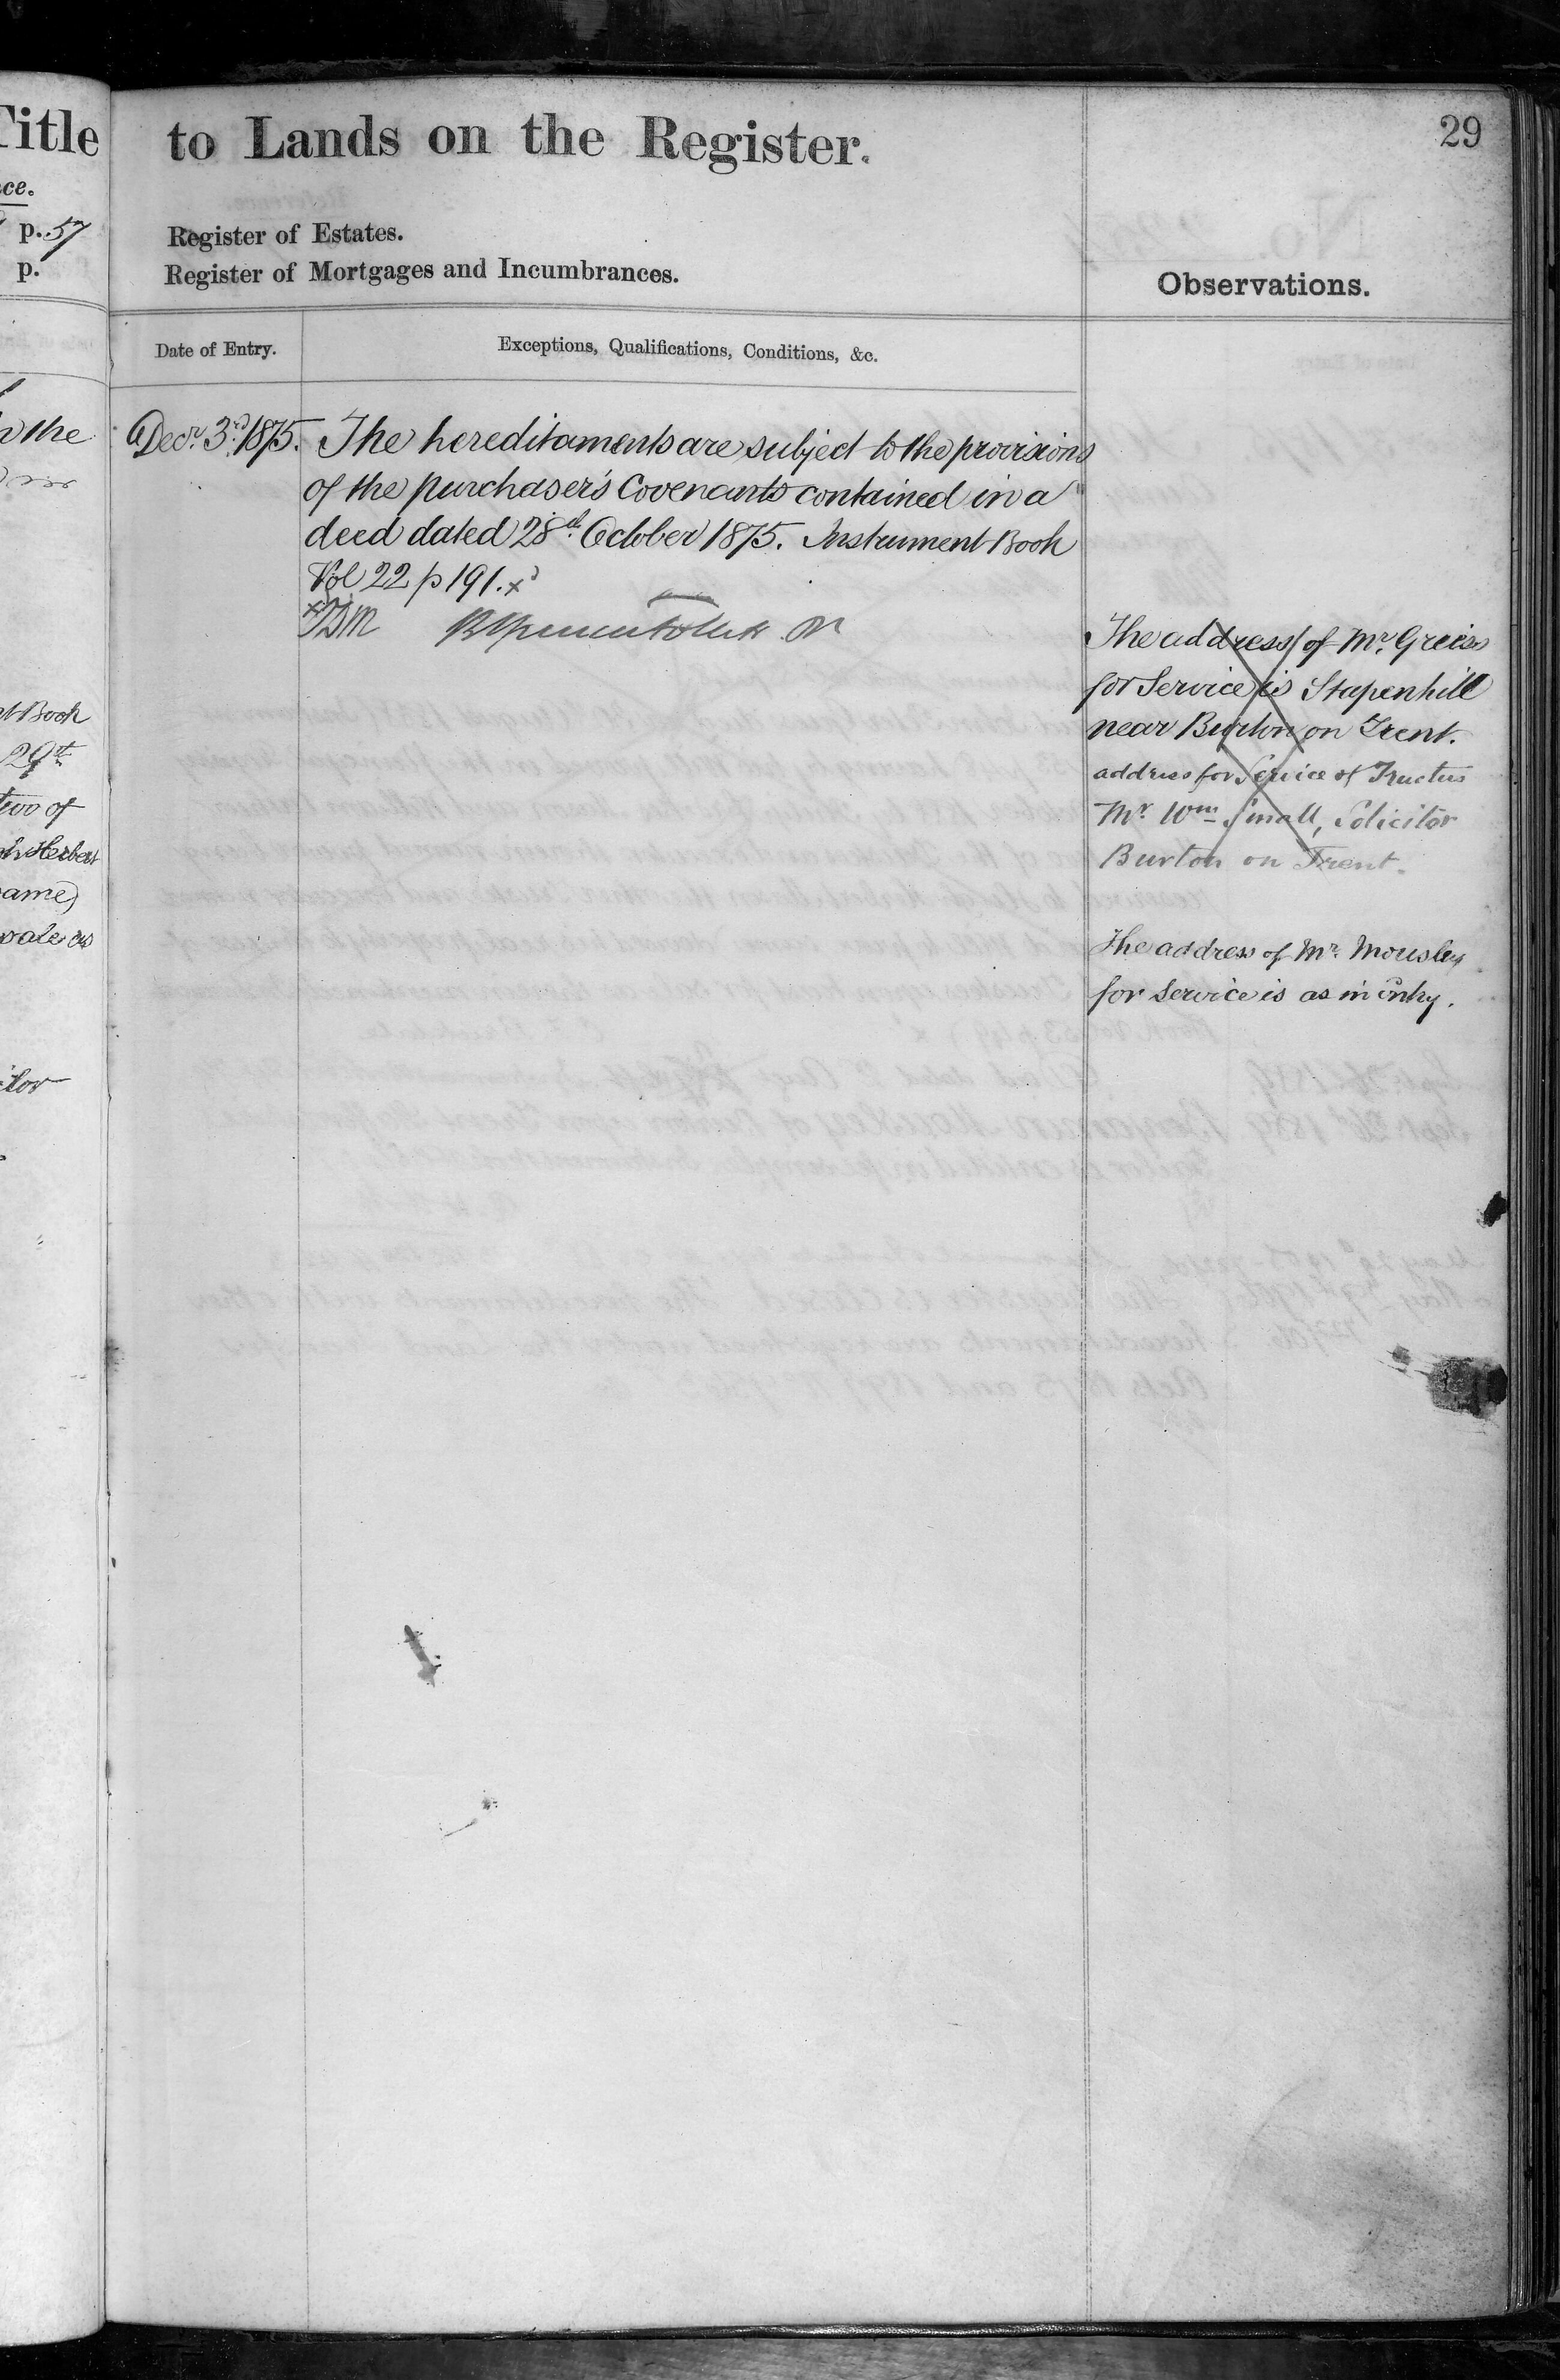 Title
ce.
p. 57
p.
the
t Book
29th
two of
Herbert
ame)
sale as
itor
to Lands on the Register.
29
Register of Estates.
Register of Mortgages and Incumbrances.
Observations.
Date of Entry.
Exceptions, Qualifications, Conditions, &c.
Decr. 3rd 1875.
The hereditaments are subject to the provisions
of the purchaser's Covenants contained in a
deed dated 28th October 1875. Instrument Book
Vol 22 p 191. x
The address of Mr.
for Service is Stapenhill
near Burton on Trent.
address for Service of Trustees
Mr. Wm Small, Solicitor
Burton on Trent.
The address of Mr. Mousley
for Service is as in Entry.